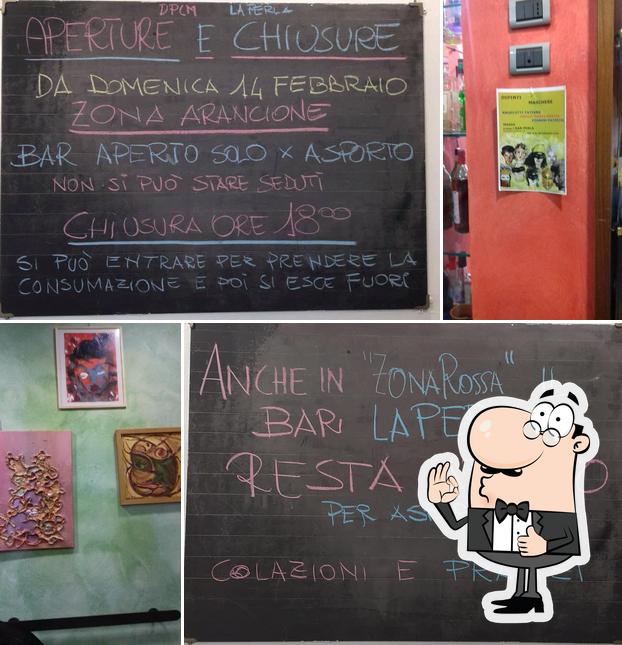 DPCM LA PERLA
APERTURE E CHIUSURE
DA DOMENICA 14 FEBBRAIO
ZONA ARANCIONE
BAR APERTO SOLO X ASPORTO
NON SI PUÒ STARE SEDUTI
CHIUSURA ORE 18°°
SI PUÒ ENTRARE PER PRENDERE LA
CONSUMAZIONE E POI SI ESCE FUORI
DIPINTI
MASCHERE
ANCHE IN "ZONA ROSSA"
BAR LA PE
RESTA
PER AS
COLAZIONI E